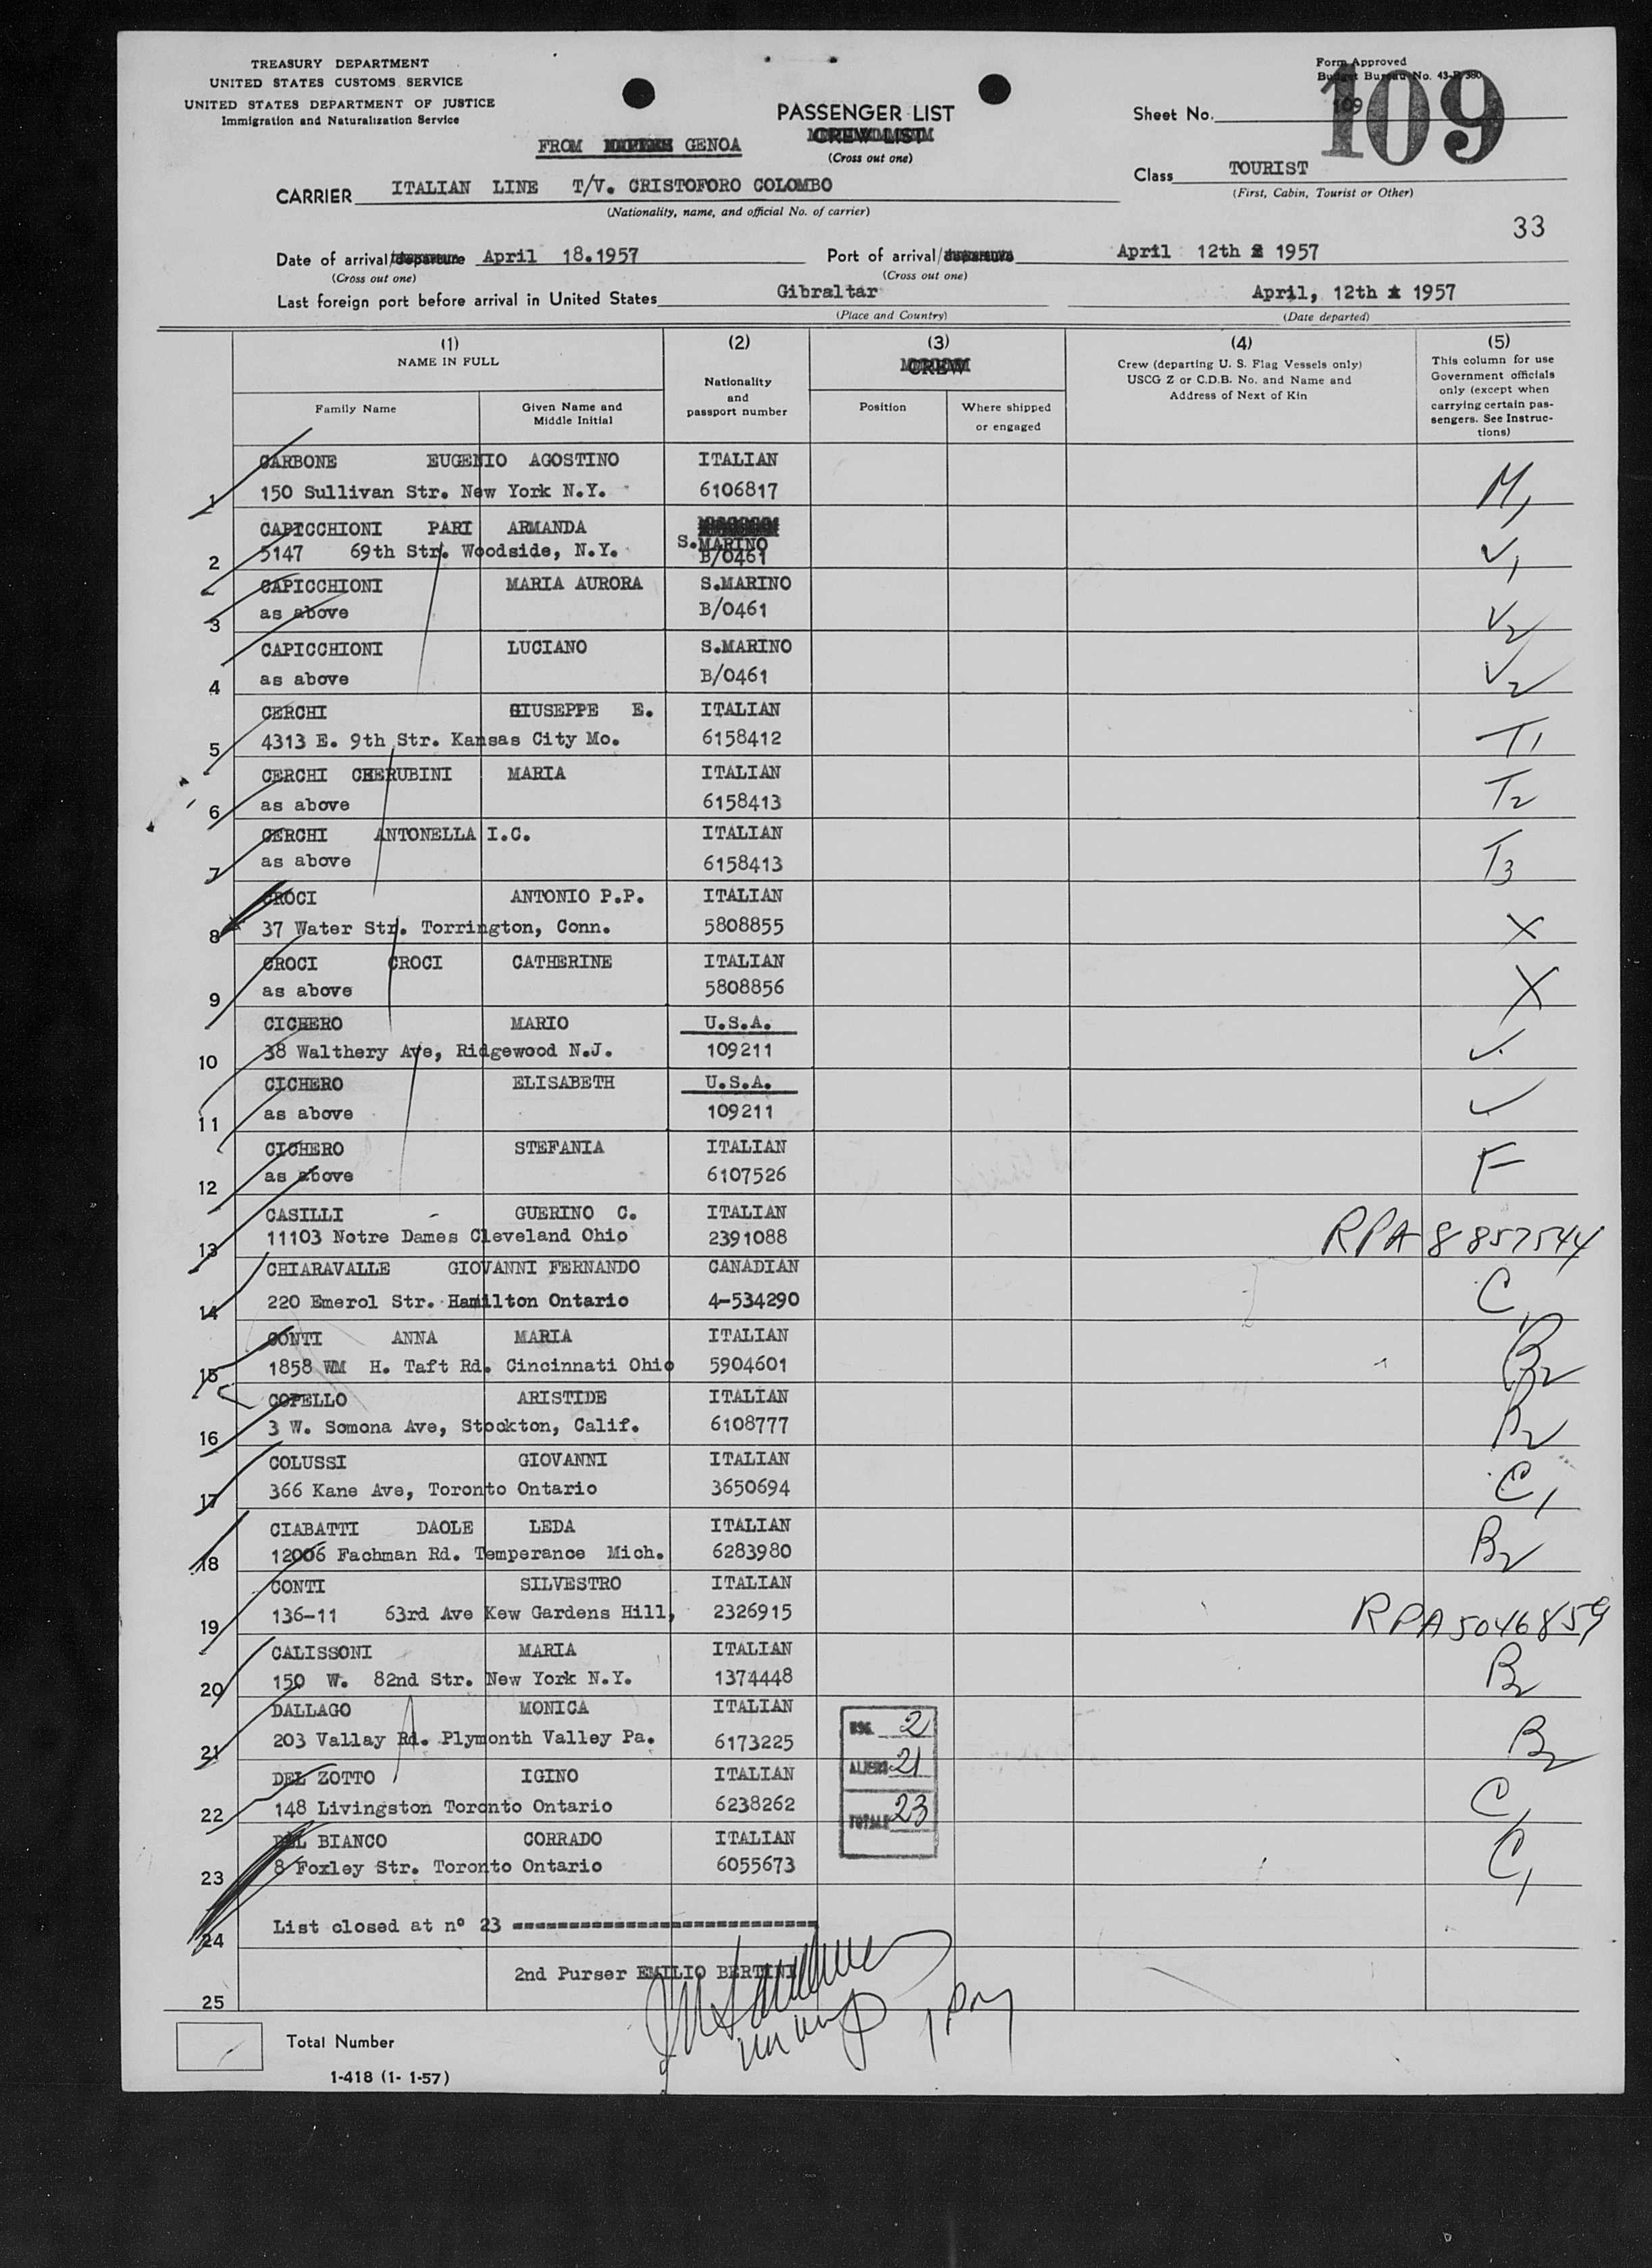 TREASURY DEPARTMENT
UNITED STATES CUSTOMS SERVICE
UNITED STATES DEPARTMENT OF JUSTICE
Immigration and Naturalization Service
FROM GENOA
PASSENGER LIST
CREW LIST
(Cross out one)
Form Approved
Budget Bureau No. 43-R 380
Sheet No. 109
109
Class TOURIST
(First, Cabin, Tourist or Other)
CARRIER ITALIAN LINE T/V. CRISTOFORO COLOMBO
(Nationality, name, and official No. of carrier)
33
Date of arrival/departure April 18.1957
(Cross out one)
Port of arrival/departure April 12th 1957
(Cross out one)
Last foreign port before arrival in United States Gibraltar April, 12th 1957
(Place and Country) (Date departed)
(1) (2) (3) (4) (5)
NAME IN FULL
Family Name
Given Name and
Middle Initial
Nationality
and
passport number
CREW
Position
Where shipped
or engaged
Crew (departing U. S. Flag Vessels only)
USCG Z or C.D.B. No. and Name and
Address of Next of Kin
This column for use
Government officials
only (except when
carrying certain pas-
sengers. See Instruc-
tions)
CARBONE EUGENIO AGOSTINO ITALIAN
1 150 Sullivan Str. New York N.Y. 6106817 M1
CAPICCHIONI PARI ARMANDA S.MARINO
2 5147 69th Str. Woodside, N.Y. B/0461 V1
CAPICCHIONI MARIA AURORA S.MARINO
3 as above B/0461 V2
CAPICCHIONI LUCIANO S.MARINO
4 as above B/0461 V2
CERCHI GIUSEPPE E. ITALIAN
5 4313 E. 9th Str. Kansas City Mo. 6158412 T1
CERCHI CHERUBINI MARIA ITALIAN
6 as above 6158413 T2
CERCHI ANTONELLA I.C. ITALIAN
7 as above 6158413 T3
CROCI ANTONIO P.P. ITALIAN
8 37 Water Str. Torrington, Conn. 5808855 X
CROCI CROCI CATHERINE ITALIAN
9 as above 5808856 X
CICHERO MARIO U.S.A.
10 38 Walthery Ave, Ridgewood N.J. 109211 ✓
CICHERO ELISABETH U.S.A.
11 as above 109211 ✓
CICHERO STEFANIA ITALIAN
12 as above 6107526 F
CASILLI - GUERINO C. ITALIAN
13 11103 Notre Dames Cleveland Ohio 2391088 RPA 8857544
CHIARAVALLE GIOVANNI FERNANDO CANADIAN
14 220 Emerol Str. Hamilton Ontario 4-534290 C1
CONTI ANNA MARIA ITALIAN
15 1858 WM H. Taft Rd. Cincinnati Ohio 5904601 B2
COPELLO ARISTIDE ITALIAN
16 3 W. Somona Ave, Stockton, Calif. 6108777 B2
COLUSSI GIOVANNI ITALIAN
17 366 Kane Ave, Toronto Ontario 3650694 C1
CIABATTI DAOLE LEDA ITALIAN
18 12006 Fachman Rd. Temperance Mich. 6283980 B2
CONTI SILVESTRO ITALIAN
19 136-11 63rd Ave Kew Gardens Hill, 2326915 RPA 5046859
CALISSONI MARIA ITALIAN
20 150 W. 82nd Str. New York N.Y. 1374448 B2
DALLAGO MONICA ITALIAN
21 203 Vallay Rd. Plymonth Valley Pa. 6173225 B2
DEL ZOTTO IGINO ITALIAN
22 148 Livingston Toronto Ontario 6238262 C1
DEL BIANCO CORRADO ITALIAN
23 8 Foxley Str. Toronto Ontario 6055673 C1
USC. 2
ALIENS 21
TOTALE 23
24 List closed at nº 23
2nd Purser EMILIO BERTINI
25
Total Number
1-418 (1- 1-57)